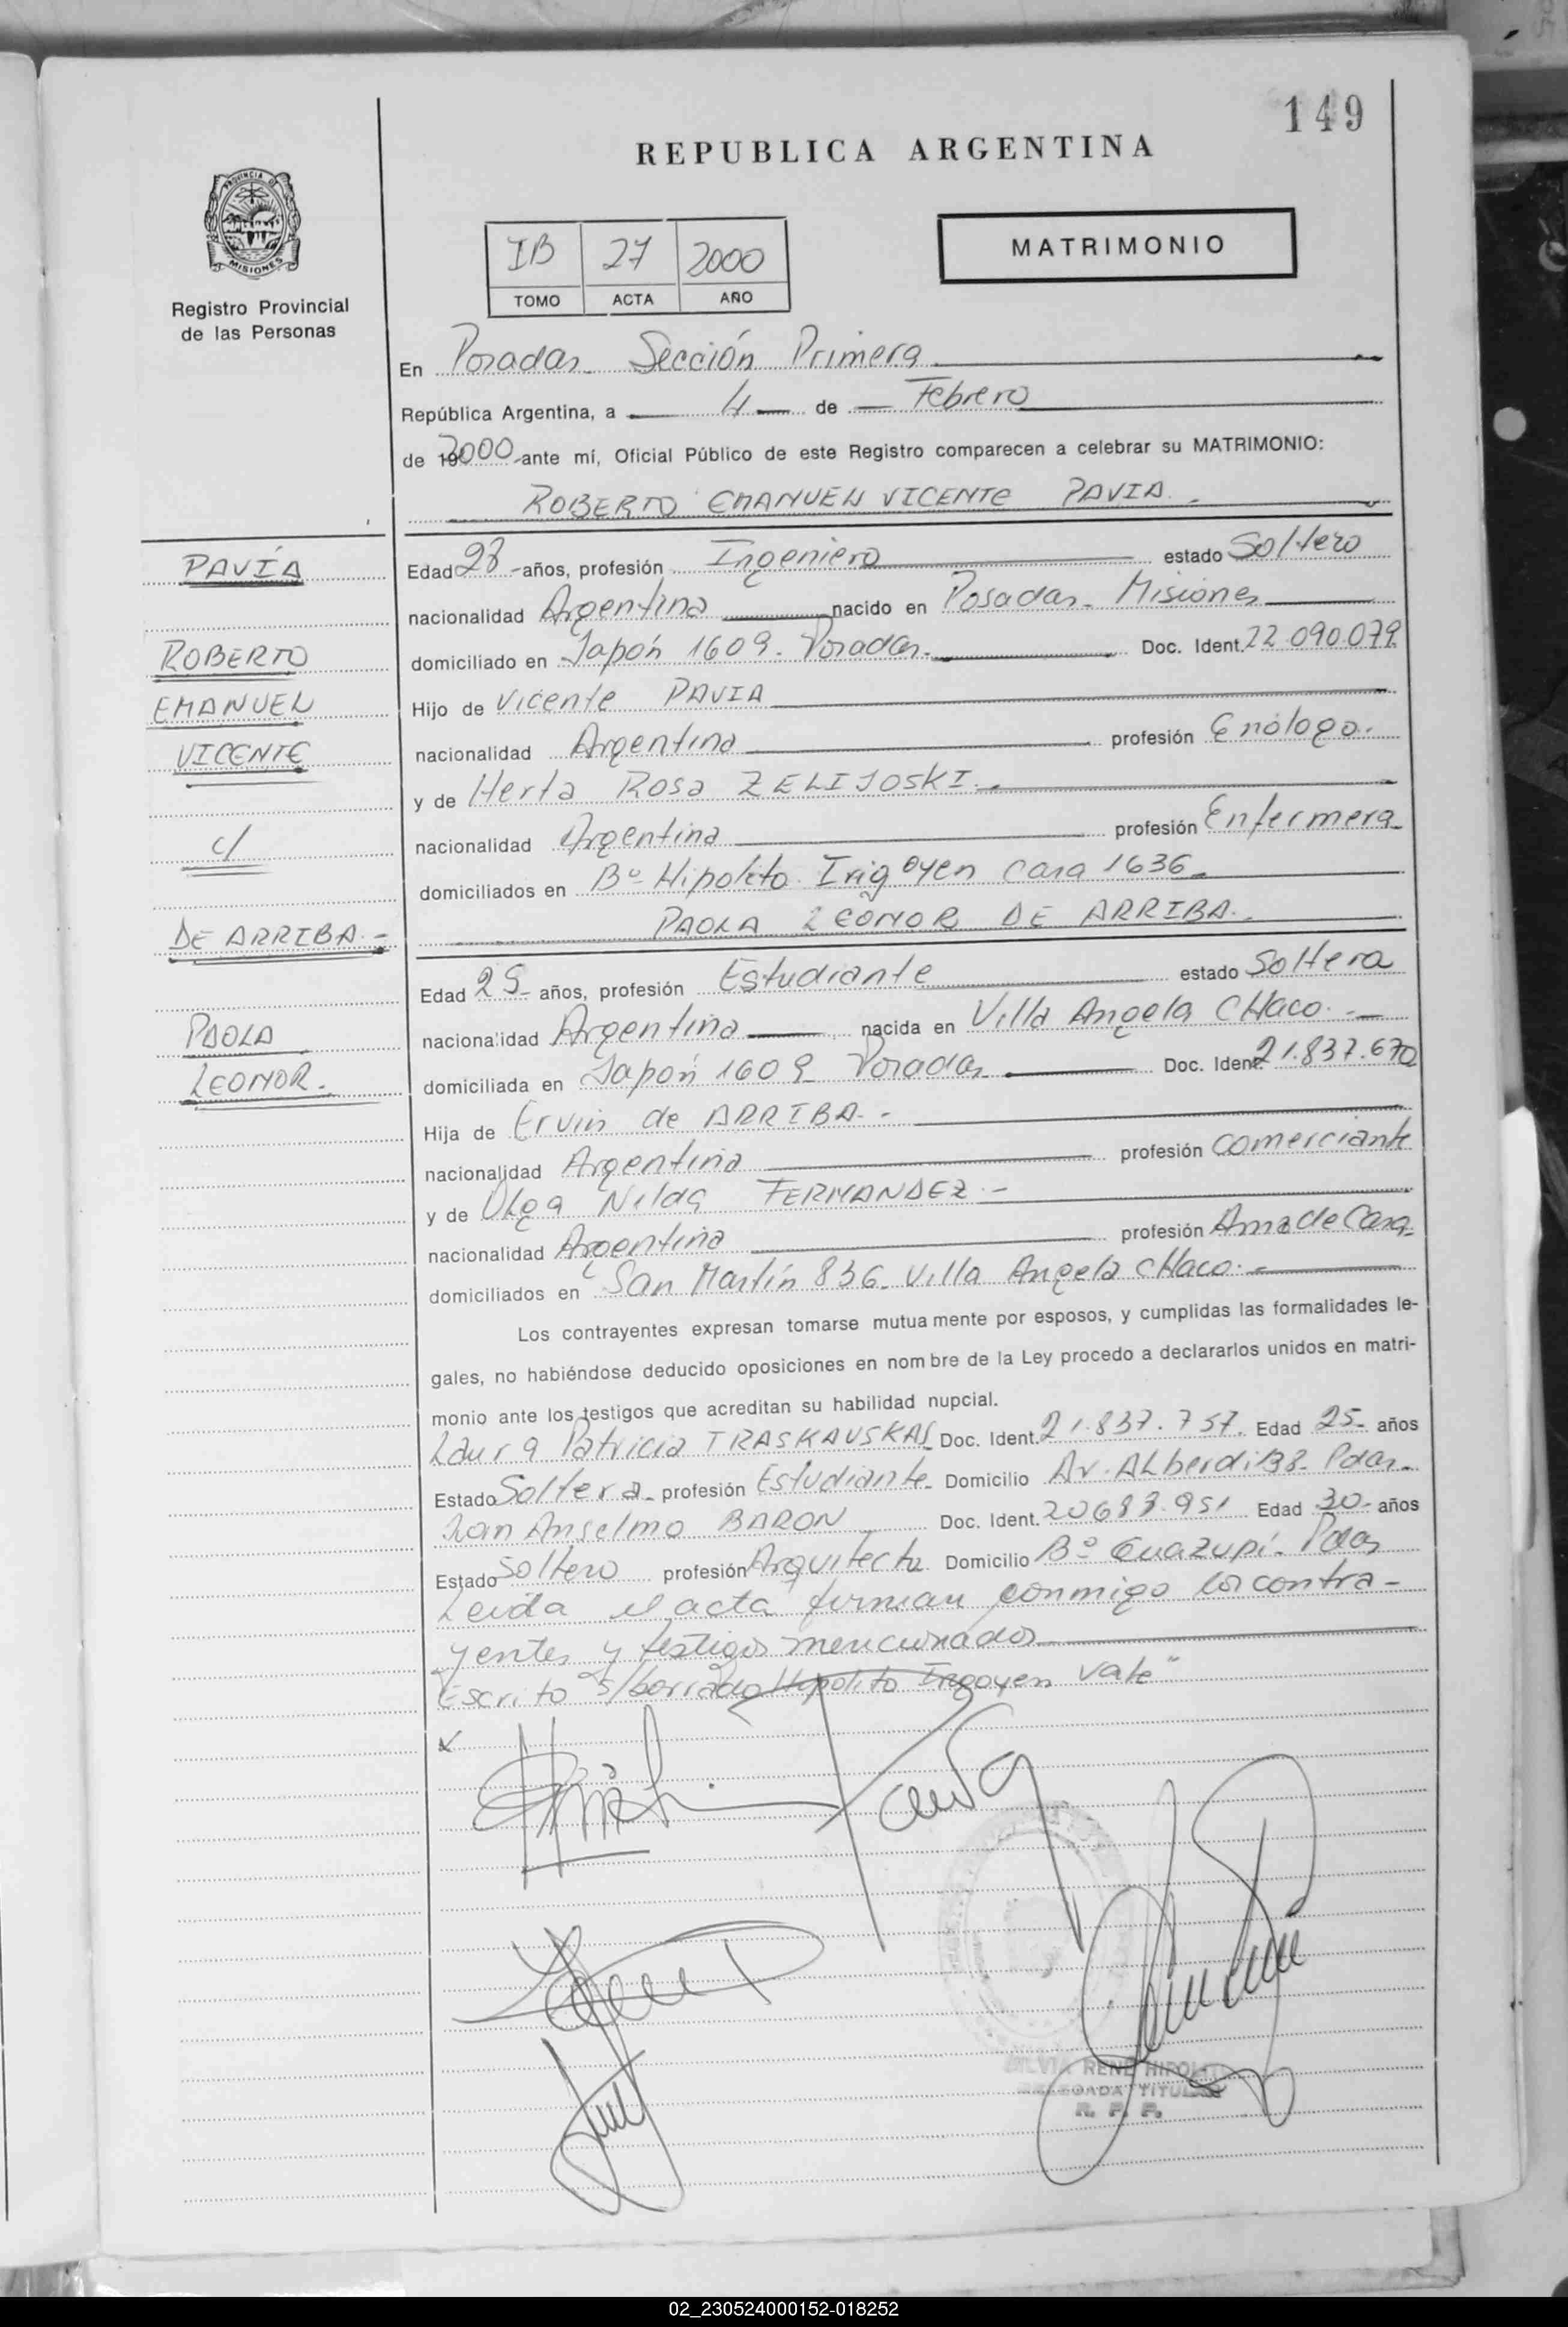 149
REPUBLICA ARGENTINA
PROVINCIA DE
MISIONES
Registro Provincial
de las Personas
IB 27 2000
TOMO ACTA AÑO
MATRIMONIO
En Posadas Sección Primera
República Argentina, a 4 de Febrero
de 192000 ante mí, Oficial Público de este Registro comparecen a celebrar su MATRIMONIO:
ROBERTO EMANUEL VICENTE PAVIA.-
PAVÍA
ROBERTO
EMANUEL
VICENTE
c/
DE ARRIBA.-
PAOLA
LEONOR.-
Edad 28 - años, profesión Ingeniero estado Soltero
nacionalidad Argentina nacido en Posadas - Misiones
domiciliado en Japón 1609 - Posadas. Doc. Ident. 22.090.079
Hijo de Vicente PAVIA
nacionalidad Argentina profesión Enólogo.
y de Herta Rosa ZELIJOSKI.-
nacionalidad Argentina profesión Enfermera
domiciliados en Bº Hipolito Irigoyen Casa 1636
PAOLA LEONOR DE ARRIBA.-
Edad 25 - años, profesión Estudiante estado Soltera
nacionalidad Argentina nacida en Villa Angela CHaco.-
domiciliada en Japón 1609 Posadas Doc. Ident. 21.837.670
Hija de Ervin de ARRIBA.-
nacionalidad Argentina profesión comerciante
y de Olga Nilda FERNANDEZ.-
nacionalidad Argentina profesión Ama de Casa
domiciliados en San Martín 836 - Villa Angela CHaco.-
Los contrayentes expresan tomarse mutua mente por esposos, y cumplidas las formalidades le-
gales, no habiéndose deducido oposiciones en nom bre de la Ley procedo a declararlos unidos en matri-
monio ante los testigos que acreditan su habilidad nupcial.
Laura Patricia TRASKAUSKAS Doc. Ident. 21.837.757. Edad 25- años
Estado Soltera - profesión Estudiante - Domicilio Av. ALberdi 138 - Pdas.
Juan Anselmo BARON Doc. Ident. 20683.951 Edad 30- años
Estado Soltero profesión Arquitecto Domicilio Bº Guazupí - Pdas
Leida el acta firman conmigo los contra-
yentes y testigos mencionados
Escrito "s/borrado Hipolito Irigoyen Vale"
SILVIA RENE HIPOLITO
DELEGADA TITULAR
R. P. P.
02_230524000152-018252